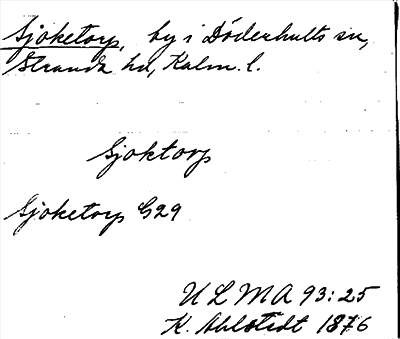 Sjöketorp, by i Döderhults sn,
Stranda hd, Kalm. l.
Sjöktorp
Sjöketorp G29
ULMA 93:25
K. Ahlstedt 1876